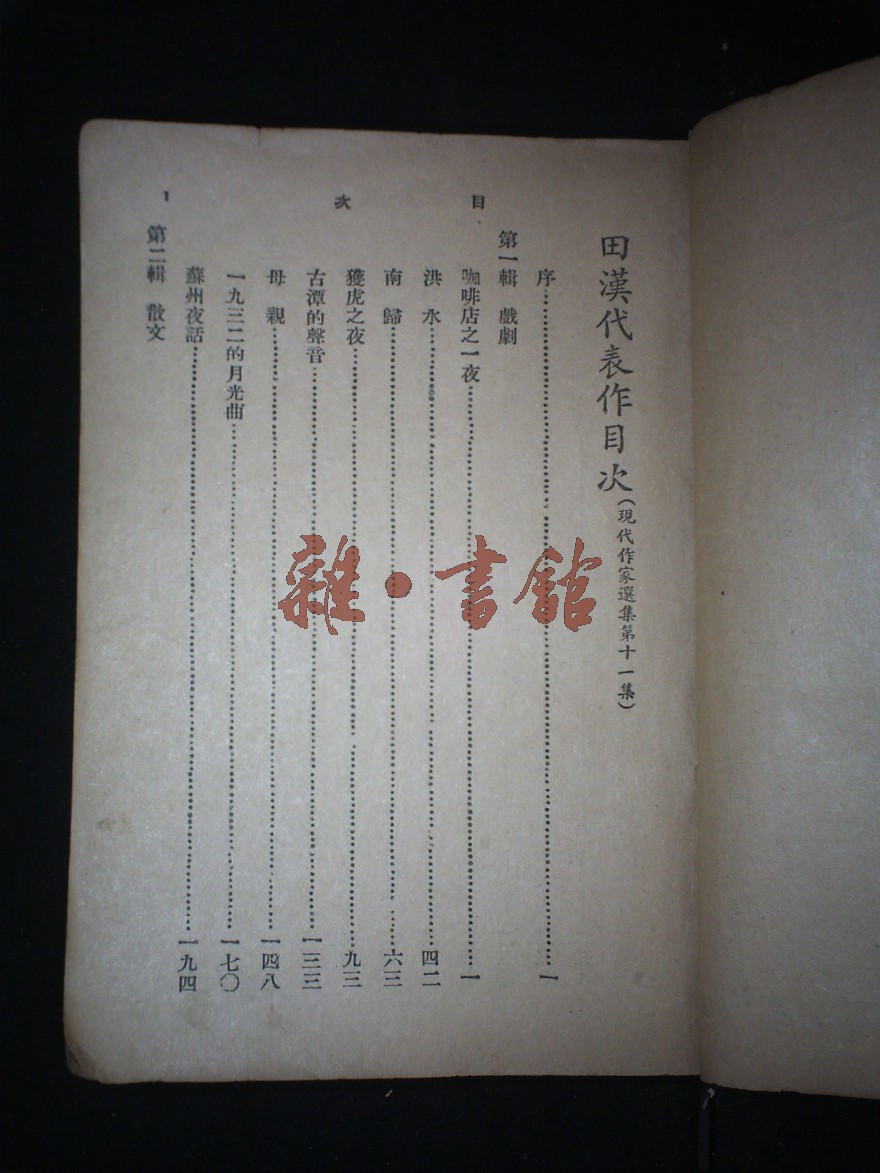 田漢代表作目次（現代作家選集第十一集）
目次
序……一
第一輯 戲劇
咖啡店之一夜……一
洪水……四二
南歸……六三
獲虎之夜……九三
古潭的聲音……一三三
母親……一四八
一九三二的月光曲……一七〇
蘇州夜話……一九四
第二輯 散文
1
雜·書館